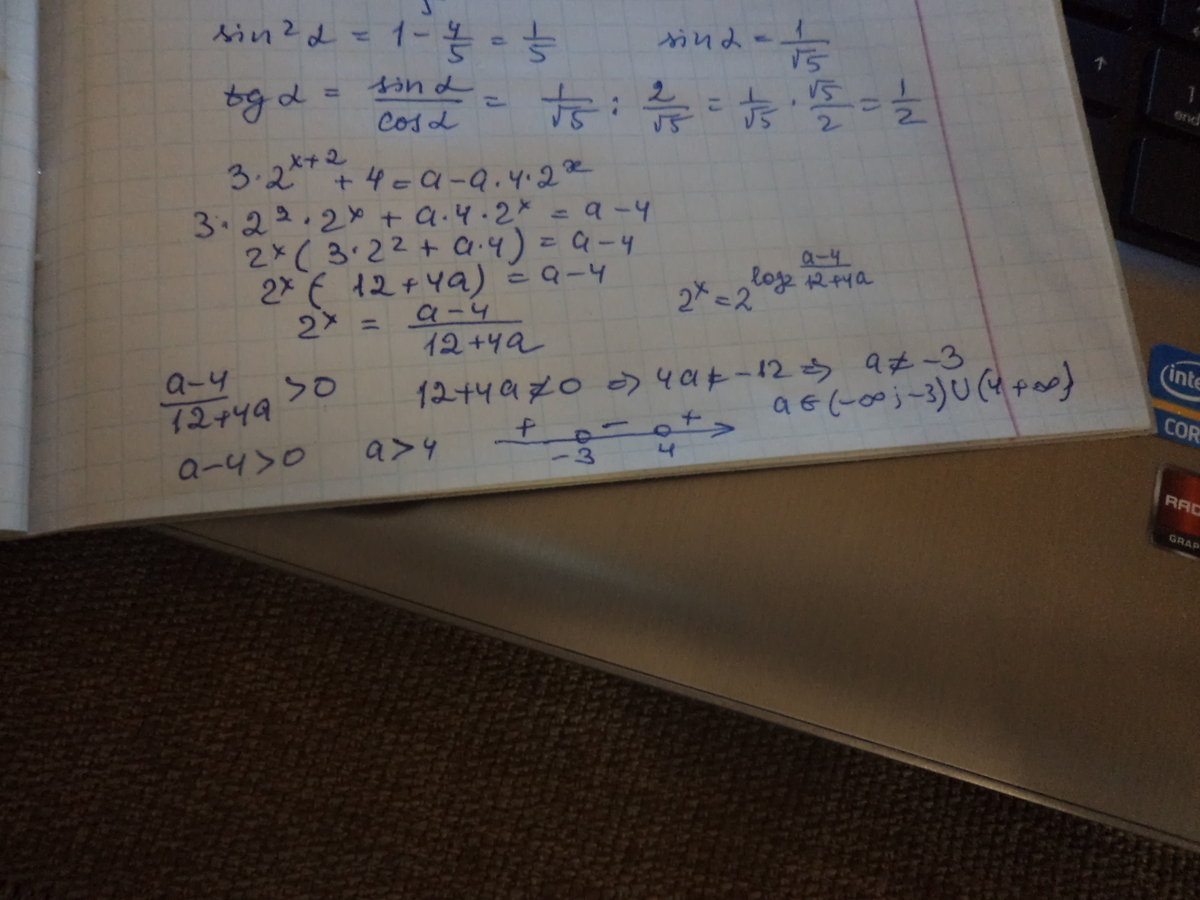 sin²α = 1 - 4/5 = 1/5    sin α = 1/√5
tg α = sin α/cos α = 1/√5 : 2/√5 = 1/√5 · √5/2 = 1/2
3·2^(x+2) + 4 = a - a·4·2^x
3·2²·2^x + a·4·2^x = a - 4
2^x(3·2² + a·4) = a - 4
2^x(12 + 4a) = a - 4
2^x = (a-4)/(12+4a)    2^x = 2^(log₂ (a-4)/(12+4a))
(a-4)/(12+4a) > 0    12+4a ≠ 0 ⇒ 4a ≠ -12 ⇒ a ≠ -3
a-4 > 0    a > 4    + -3 - 4 +    a ∈ (-∞; -3) ∪ (4 +∞}
↑
end
inte
COR
RAD
GRAP